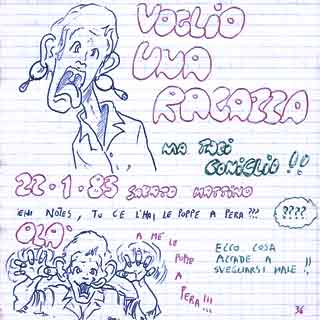 VOGLIO
UNA
RAGAZZA
, MA TREI
CONIGLIO !!
22·1·83 SABATO MATTINO
EHI NOTES, TU CE L'HAI LE POPPE A PERA???
????
OLA'
A ME LE
POPPE
A
PERA!!!
ECCO COSA
ACCADE A
SVEGLIARSI MALE !!
36